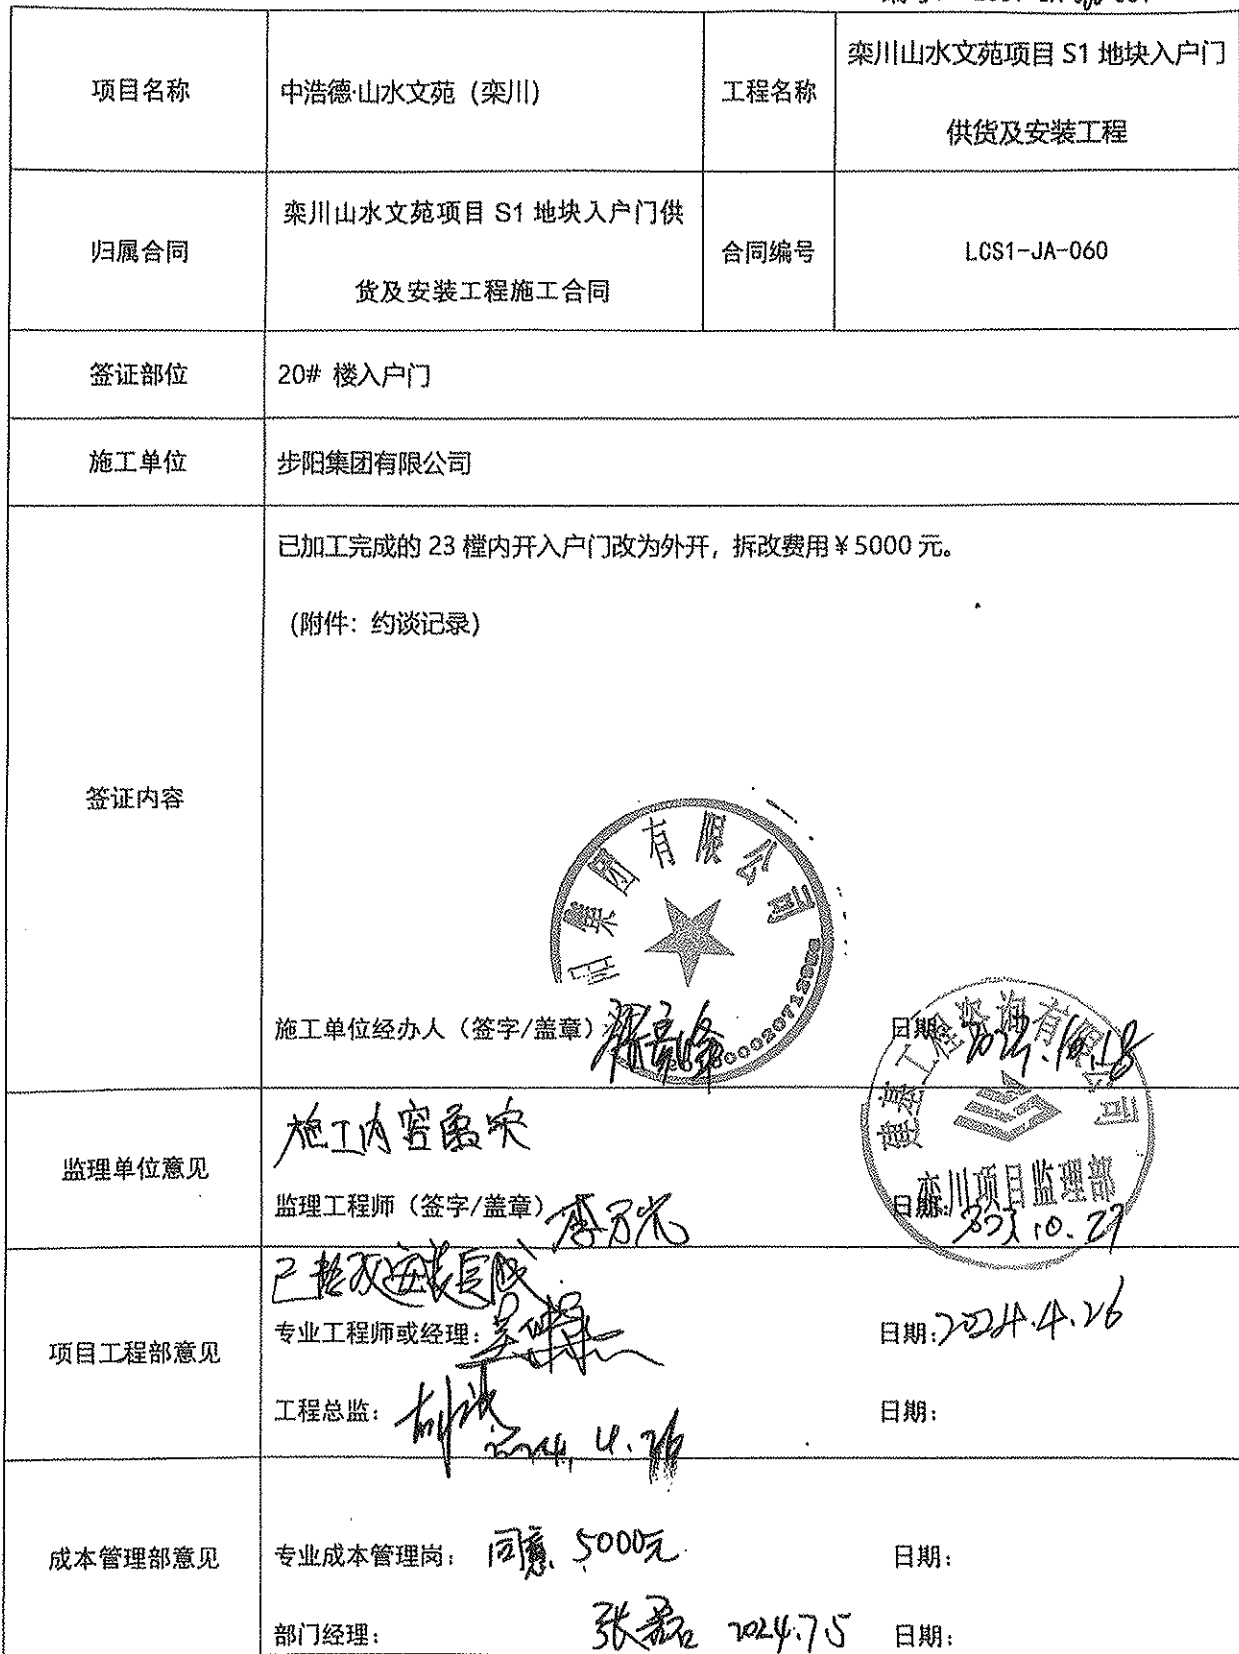 项目名称
中浩德·山水文苑（栾川）
工程名称
栾川山水文苑项目 S1 地块入户门
供货及安装工程
归属合同
栾川山水文苑项目 S1 地块入户门供
货及安装工程施工合同
合同编号
LCS1-JA-060
签证部位
20# 楼入户门
施工单位
步阳集团有限公司
签证内容
已加工完成的 23 樘内开入户门改为外开，拆改费用￥5000 元。
（附件：约谈记录）
阳集团有限公司
施工单位经办人（签字/盖章）
日期:
建基工程咨询有限公司
栾川项目监理部
监理单位意见
施工内容属实
监理工程师（签字/盖章）
李万光
日期:
10.27
项目工程部意见
已整改安装完成
专业工程师或经理:
日期: 2024.4.26
工程总监:
2024.4.26
日期:
成本管理部意见
专业成本管理岗: 同意 5000元
日期:
部门经理: 张磊 2024.7.5
日期: